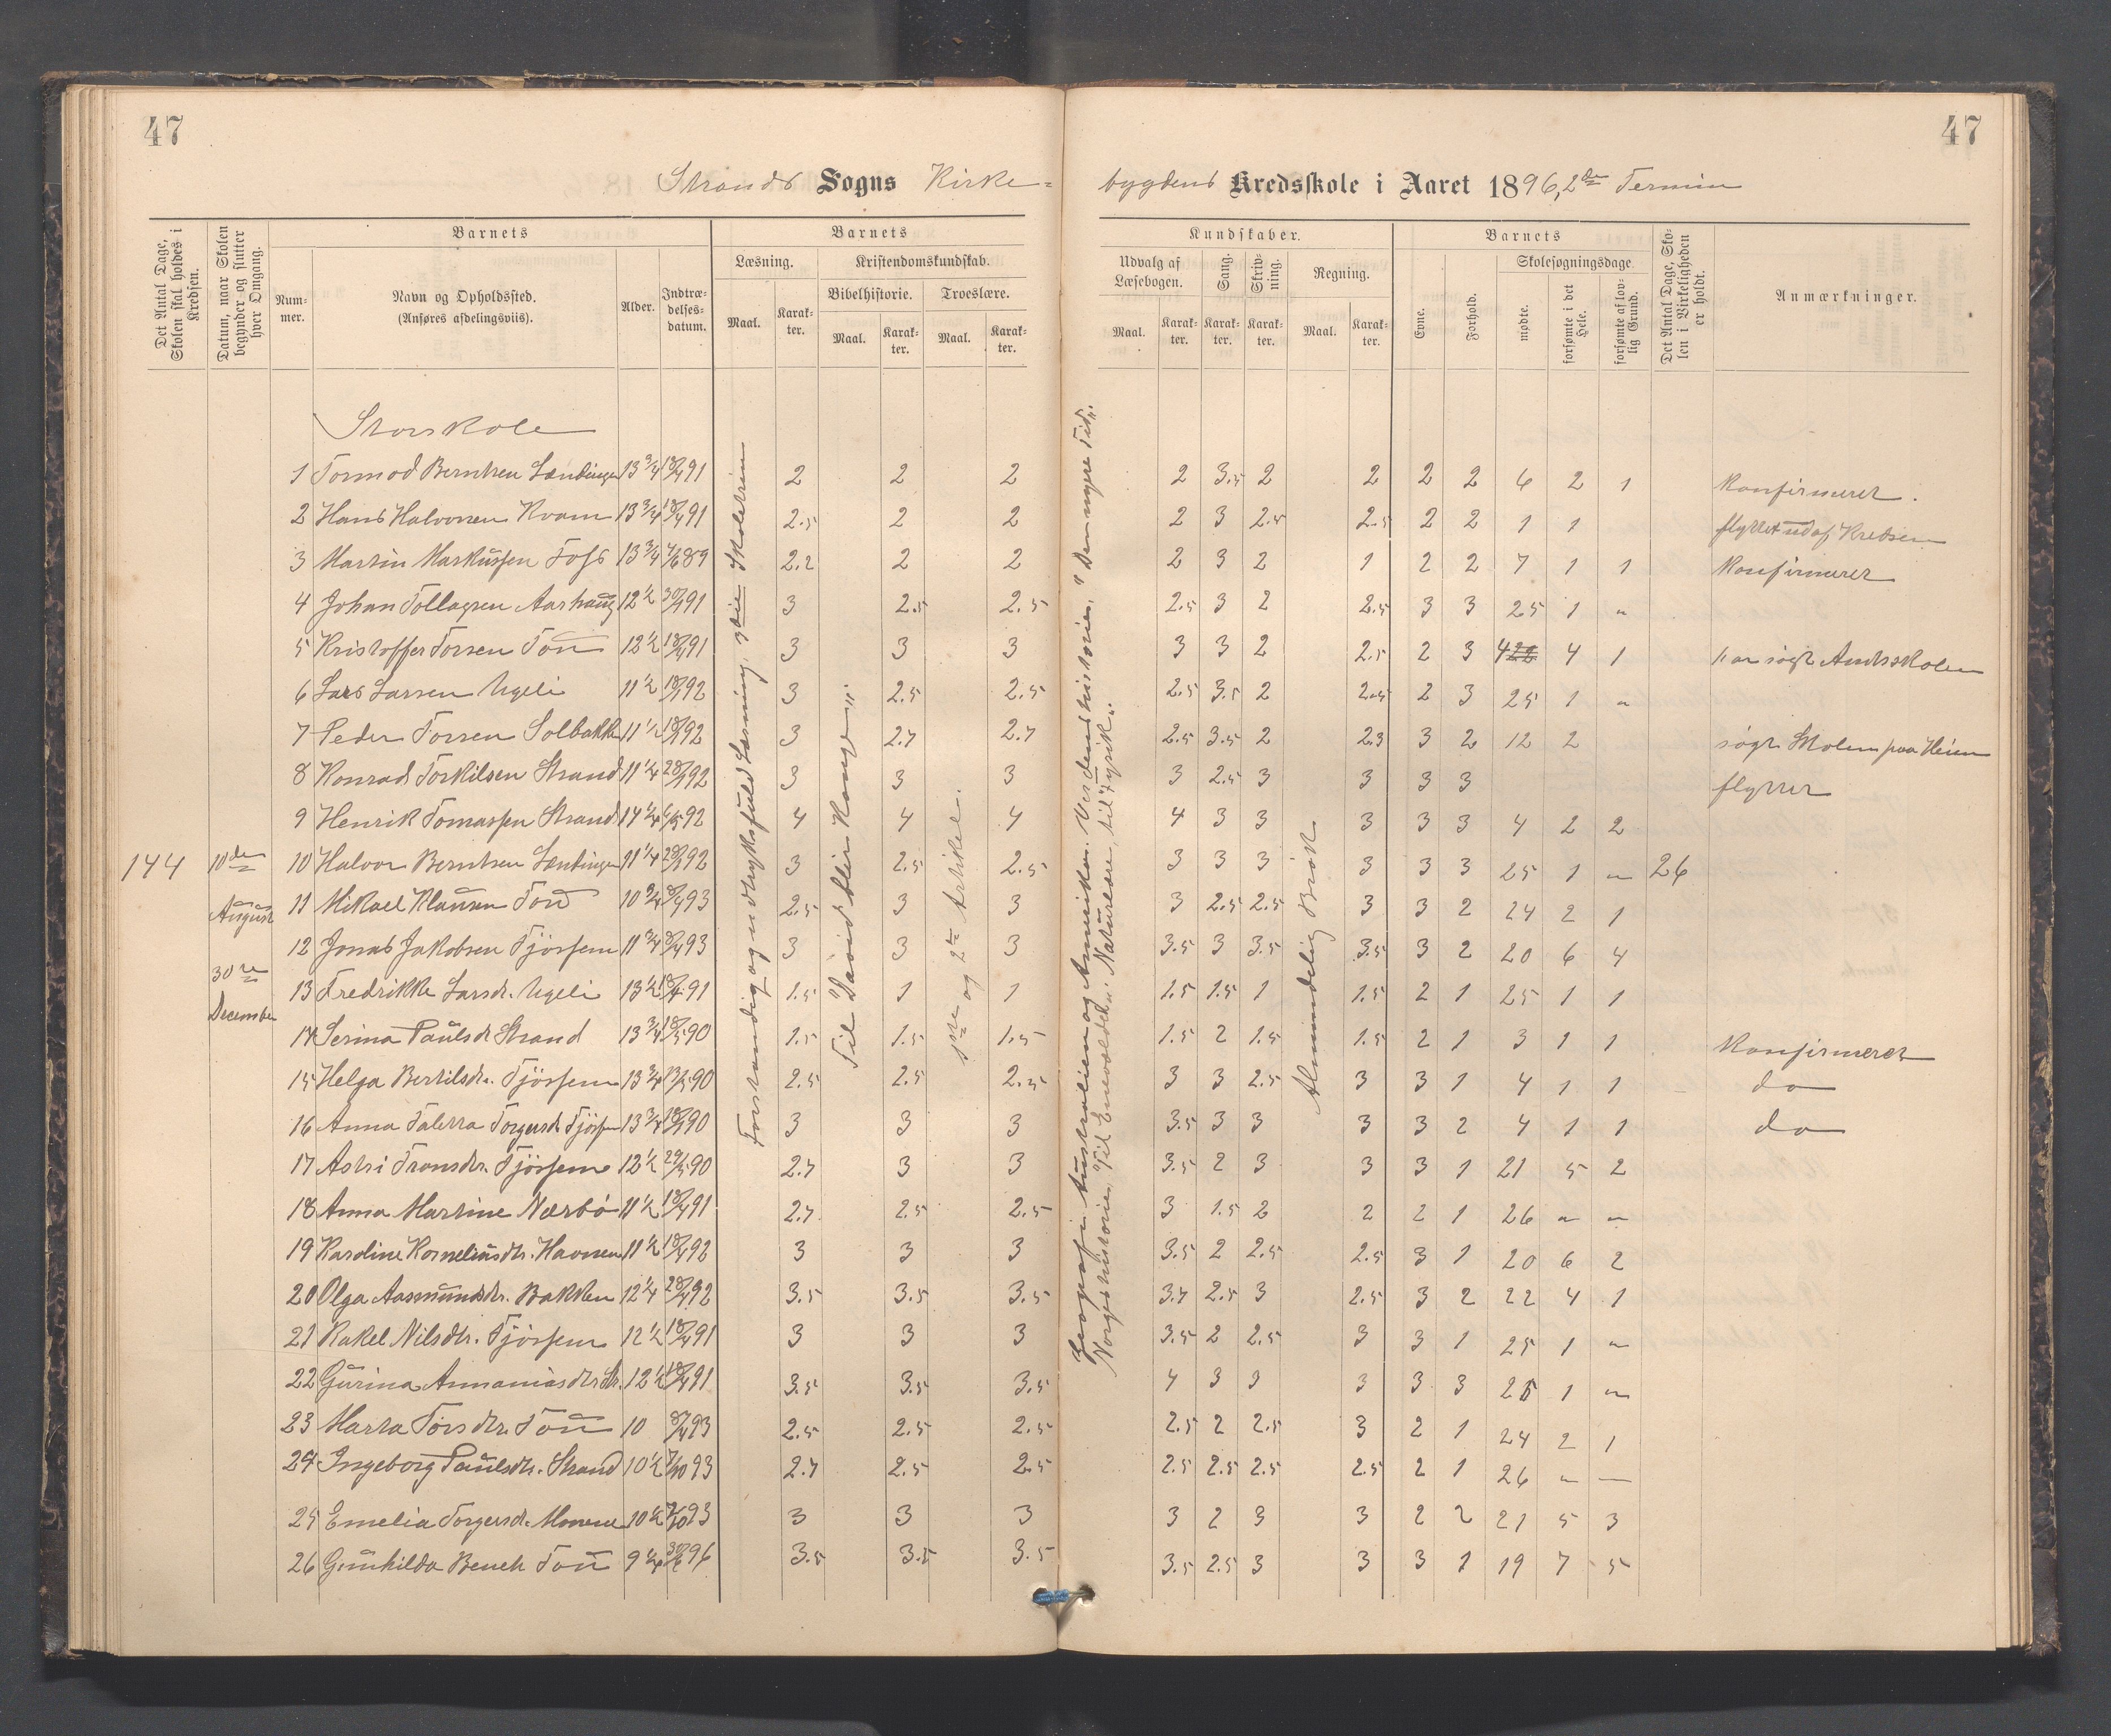 47
47
Strands Sogns Kirke-
bygdens Kredsskole i Aaret 1896, 2den Termin
Det Antal Dage, Skolen skal holdes i Kredsen.
Datum, naar Skolen begynder og slutter hver Omgang.
Barnets
Nummer.
Navn og Opholdssted. (Anføres afdelingsviis).
Alder.
Indtrædelsesdatum.
Barnets
Læsning.
Maal.
Karakter.
Kristendomskundskab.
Bibelhistorie.
Maal.
Karakter.
Troeslære.
Maal.
Karakter.
Kundskaber.
Udvalg af Læsebogen.
Maal.
Karakter.
Sang.
Karakter.
Skrivning.
Karakter.
Regning.
Maal.
Karakter.
Barnets
Evne.
Forhold.
Skolesøgningsdage
mødte.
forsømte i det Hele.
forsømte af lovlig Grund.
Det Antal Dage, Skolen i Virkeligheden er holdt.
Anmærkninger.
Storskole
144
10de August
30te December
Forstandig og udtryksfuld Læsning, 3die Skoletrin
Til "David bliver Konge"
1ste og 2den Artikel.
Geografi: Australien og Amerika. Verdenshistorien, "Den nyere Tid".
Norgeshistorien, Til Enevælden. Naturlære, til "Fysik".
Almindelig Brøk
1 Tormod Berntsen Lændingen 13 3/4 18/4 91 2 2 2 2 3.5 2 2 2 2 6 2 1 Konfirmeret.
2 Hans Halvorsen Kvam 13 3/4 18/4 91 2.5 2 2 2 3 2.5 2.5 2 2 1 1 flyttet ud af Kredsen
3 Martin Markussen Foss 13 3/4 4/6 89 2.2 2 2 2 3 2 1 2 2 7 1 1 Konfirmeret
4 Johan Tollagsen Aarhaug 12 1/2 30/4 91 3 2.5 2.5 2.5 3 2 2.5 3 3 25 1 "
5 Kristoffer Torsen Tou 12 1/2 18/4 91 3 3 3 3 3 2 2.5 2 3 4 4 1 har søgt Amtsskolen
6 Lars Larsen Ugeli 11 1/2 18/4 92 3 2.5 2.5 2.5 3.5 2 2.5 2 3 25 1 "
7 Peder Torsen Solbakk 11 1/2 18/4 92 3 2.7 2.7 2.5 3.5 2 2.3 3 2 12 2 søgt Skolen paa Heien
8 Konrad Torkilsen Strand 11 1/4 28/4 92 3 3 3 3 2.5 3 3 3 3 flytter
9 Henrik Tomassen Strand 14 1/4 6/5 92 4 4 4 4 3 3 3 3 3 4 2 2
10 Halvor Berntsen Lændingen 11 1/4 28/4 92 3 2.5 2.5 3 3 3 3 3 3 25 1 " 26
11 Mikael Klausen Tou 10 3/4 8/4 93 2.5 3 3 3 2.5 2.5 3 3 2 24 2 1
12 Jonas Jakobsen Tjössem 11 3/4 8/4 93 3 3 3 3.5 3 3.5 3.5 3 2 20 6 4
13 Fredrikke Larsdr. Ugeli 13 1/2 18/4 91 1.5 1 1 1.5 1.5 1 1.5 2 1 25 1 1
14 Serina Paulsdr Strand 13 3/4 18/5 90 1.5 1.5 1.5 1.5 2 1.5 1.5 2 1 3 1 1 Konfirmeret
15 Helga Bertilsdr. Tjössem 13 3/4 13/5 90 2.5 2.5 2.5 3 3 2.5 3 3 1 4 1 1 do
16 Anna Taletta Torgersdr Tjössem 13 3/4 28/4 90 3 3 3 3.5 3 3 3 3 2 4 1 1 do
17 Astri Tronsdtr. Tjössem 12 1/2 29/5 90 2.7 3 3 3.5 2 3 3 3 1 21 5 2
18 Anna Martine Nærbö 11 1/2 18/4 91 2.7 2.5 2.5 3 1.5 2 2 2 1 26 " "
19 Karoline Korneliusdtr. Havnen 11 1/2 18/4 92 3 3 3 3.5 2 2.5 2.5 3 1 20 6 2
20 Olga Aasmundsdtr. Bakken 12 1/4 28/4 92 3.5 3.5 3.5 3.7 2.5 3 2.5 3 2 22 4 1
21 Rakel Nilsdtr. Tjössem 12 1/2 18/4 91 3 3 3 3.5 2 2.5 3 3 1 25 1 "
22 Gurina Annaniasdtr Str. 12 1/2 18/4 91 3.5 3.5 3.5 4 3 3 3 3 3 25 1 "
23 Marta Torsdtr. Tou 10 8/4 93 2.5 2.5 2.5 2.5 2 2.5 3 2 1 24 2 1
24 Ingeborg Paulsdtr. Strand 10 1/2 7/10 93 2.7 2.5 2.5 2.5 2.5 2.5 2.5 2 1 26 " —
25 Emelia Torgersdr. 10 1/2 7/10 93 3 3 3 3 2 3 3 2 2 21 5 3
26 Gunhilda Tou 9 1/4 30/6 96 3.5 3.5 3.5 3.5 2.5 3 3 3 1 19 7 5